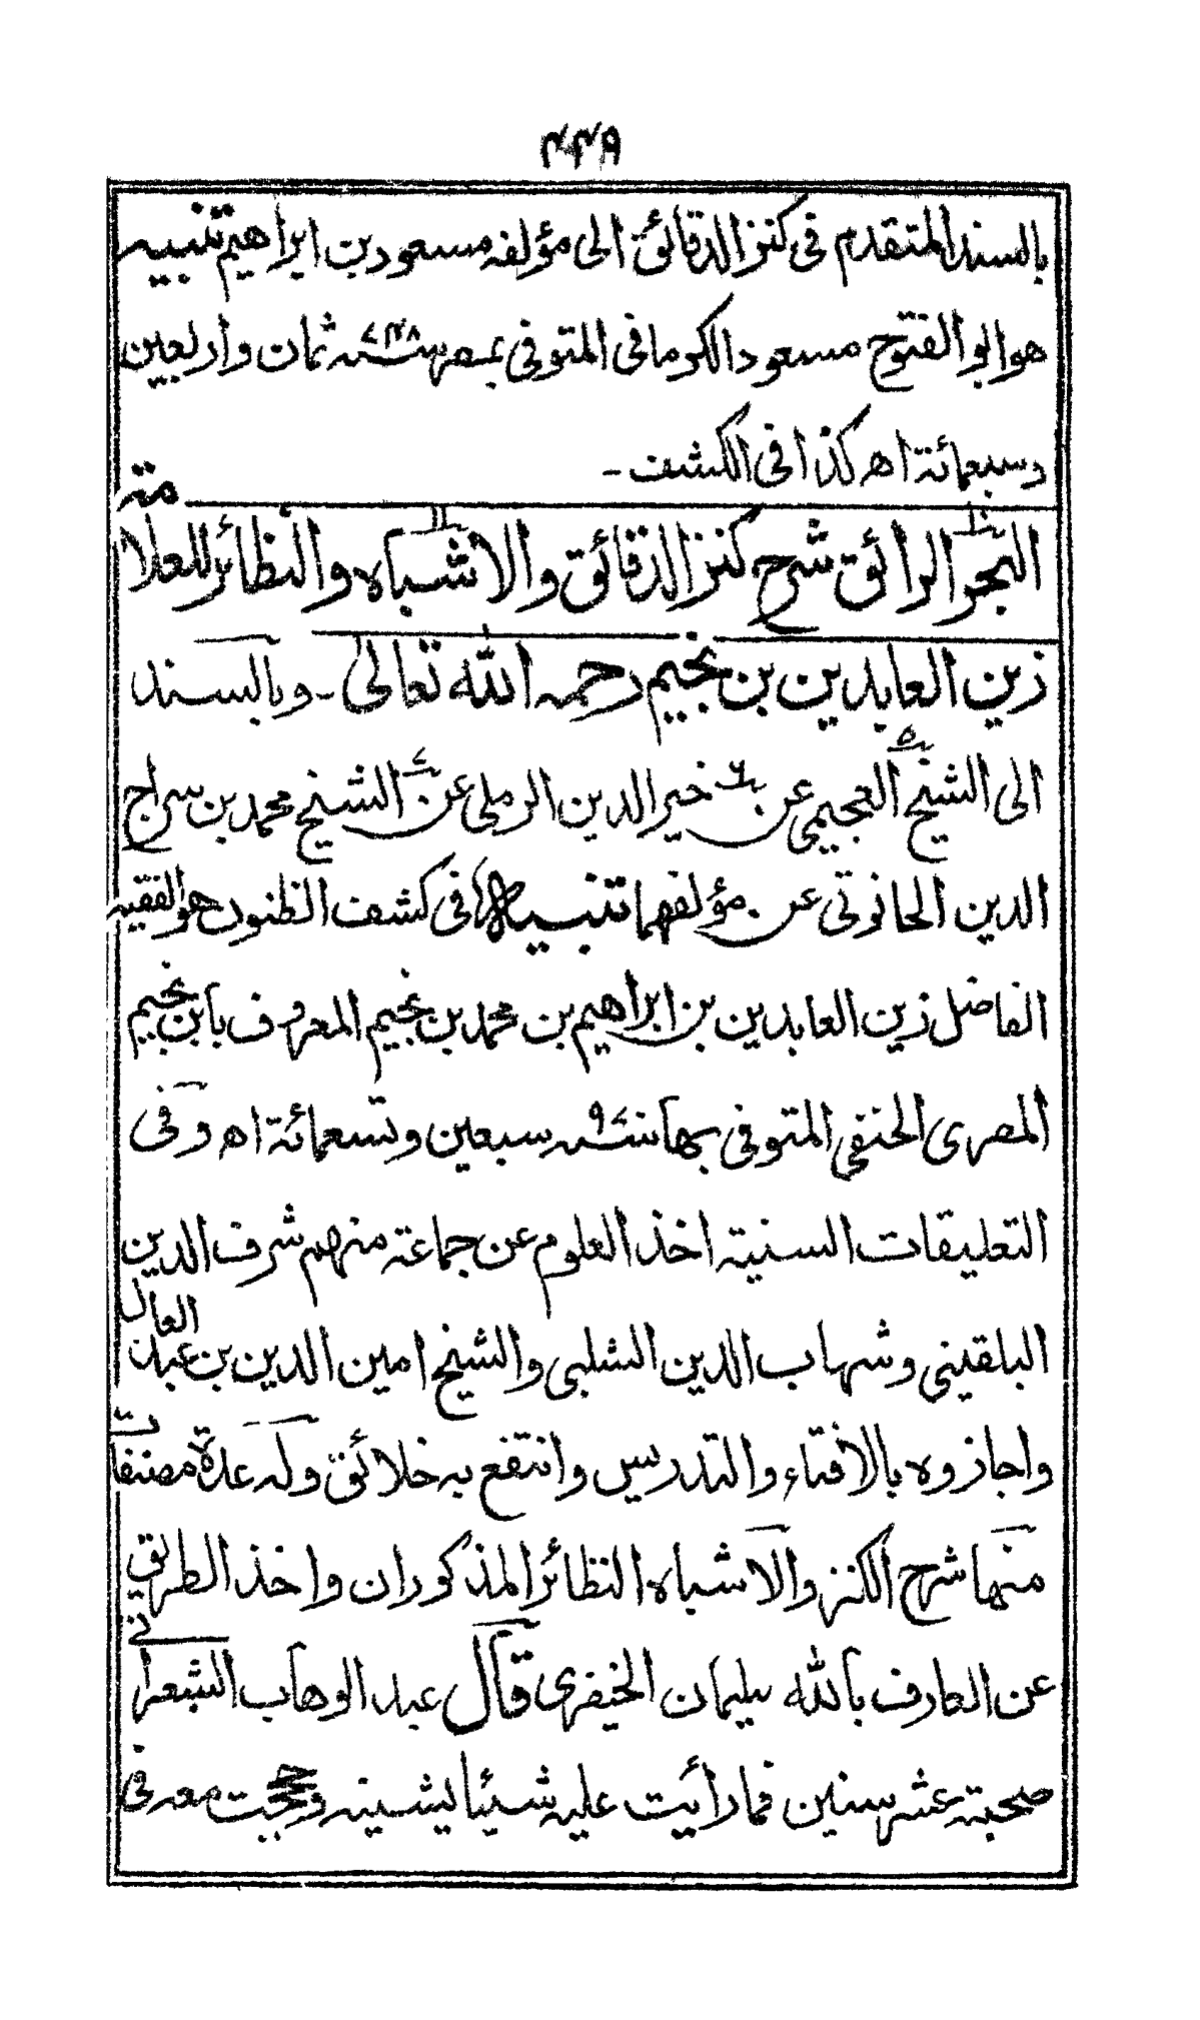 ٤٤٩
بالسند المتقدم فى كنز الدقائق الى مؤلفه مسعود بن ابراهيم تنبيه
هو ابو الفتوح مسعود الكرمانى المتوفى بمصر سنة ٧٤٨ ثمان واربعين
وسبعمائة اه كذا فى الكشف -
البحر الرائق شرح كنز الدقائق والاشباه والنظائر للعلامة
زين العابدين بن نجيم رحمه الله تعالى - وبالسند
الى الشيخ العجيمى عن خير الدين الرملى عن الشيخ محمد بن سراج
الدين الحانوتى عن مؤلفهما تنبيه فى كشف الظنون هو الفقيه
الفاضل زين العابدين بن ابراهيم بن محمد بن نجيم المعروف بابن نجيم
المصرى الحنفى المتوفى بها سنة ٩٧٠ سبعين وتسعمائة اه وفى
التعليقات السنية اخذ العلوم عن جماعة منهم شرف الدين
البلقينى وشهاب الدين الشلبى والشيخ امين الدين بن عبد العال
واجازوه بالافتاء والتدريس وانتفع به خلائق وله عدة مصنفات
منها شرح الكنز والاشباه النظائر المذكوران واخذ الطريق
عن العارف بالله سليمان الخيضرى قال عبد الوهاب الشعرانى
صحبته عشر سنين فما رأيت عليه شيئا يشينه وحججت معه فى